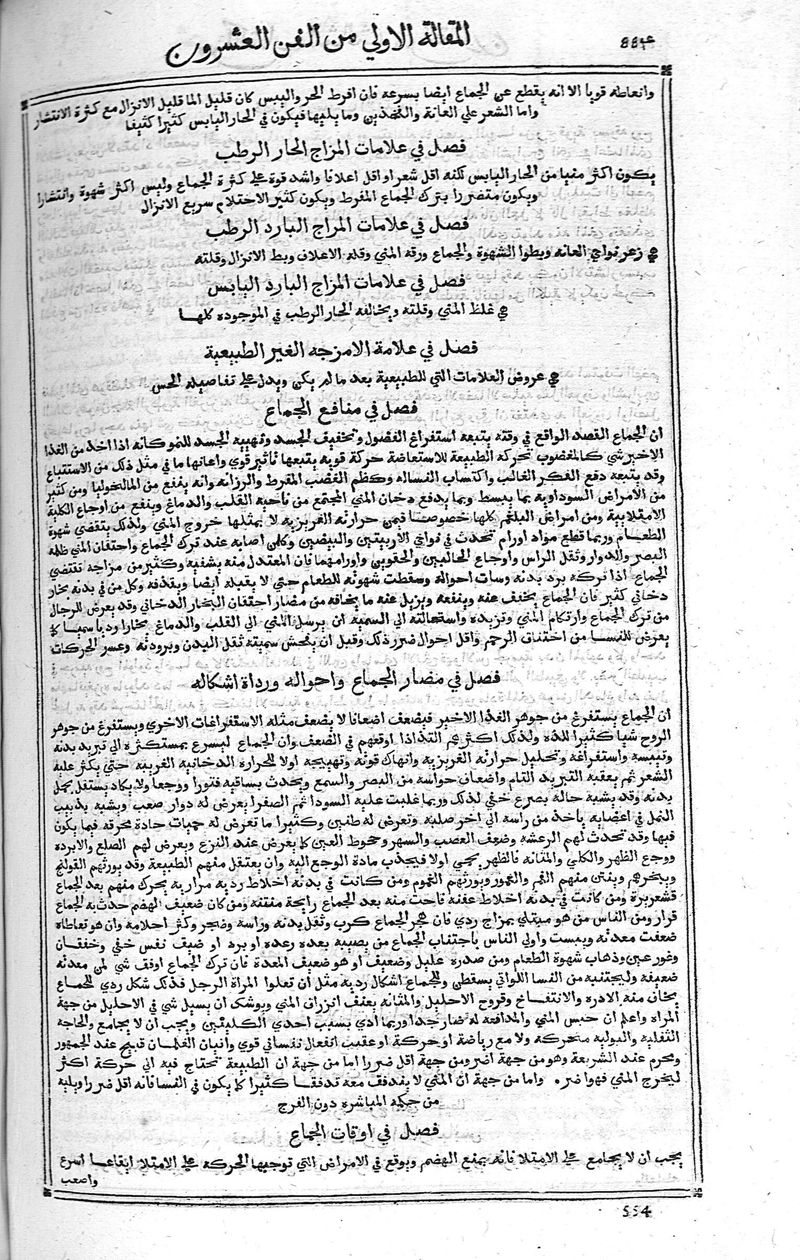 المقالة الاولي من الفن العشرون
٥٥٤
وانعاظه قويا الا انه يقطع عن الجماع ايضا بسرعه فان افرط الحر واليبس كان قليل الما قليل الانزال مع كثرة الانتشار
واما الشعر علي العانة والفخذين وما يليها فيكون في الحار اليابس كثيرا كثيفا
فصل في علامات المزاج الحار الرطب
يكون اكثر منيا من الحار اليابس لكنه اقل شعر او اقل اعلاقا واشد قوة علي كثرة الجماع وليس اكثر شهوة وانتشارا
ويكون متضررا بترك الجماع المفرط ويكون كثير الاحتلام سريع الانزال
فصل في علامات المزاج البارد الرطب
زعر نواحي العانه وبطوا الشهوة والجماع ورقه المني وقله الاعلاف وبط الانزال وقلته
فصل في علامات المزاج البارد اليابس
غلظ المني وقلته ويخالفه الحار الرطب في الموجوده كلها
فصل في علامة الامزجه الغير الطبيعية
عروض العلامات التي للطبيعية بعد ما لم يكن ويدل علي تفاصيله الحس
فصل في منافع الجماع
ان الجماع القصد الواقع في وقته يتبعه استفراغ الفضول وتخفيف الجسد وتهييه الجسد للنمو كانه اذا اخذ من الغذا
الاخير شي كالمغصوب تحركه الطبيعة للاستعاضة حركة قويه يتبعها تاثير قوي واعانها ما في مثل ذلك من الاستتباع
وقد يتبعه دفع الفكر الغالب واكتساب البساله وكظم الغضب المفرط والرزانه وانه ينفع من المالنخوليا ومن كثير
من الامراض السوداويه بما يبسط وبما يدفع دخان المني المجتمع من ناحيه القلب والدماغ وينفع من اوجاع الكلية
الامتلاييه ومن امراض البلغم كلها خصوصا فيمن حرارته الغريزيه لا يثلمها خروج المني ولذلك يتقضي شهوة
الطعام وربما قطع مواد اورام تحدث في نواحي الاربيتين والبيضين وكل من اصابه عند ترك الجماع واحتقان المني ظلمه
البصر والدوار وثقل الراس واوجاع الحالبين والحقوين واورامهما فان المعتدل منه يشفيه وكثير من مزاجه يقتضي
الجماع اذا تركه برد بدنه وسات احواله وسقطت شهوته للطعام حتي لا يقبله ايضا ويقذفه وكل من في بدنه بخار
دخاني كثير فان الجماع يخفف عنه وينفعه ويزيل عنه ما يخافه من مضار احتقان البخار الدخاني وقد يعرض للرجال
من ترك الجماع وارتكام المني وتزيده واستحالته الي السمية ان يرسل المني الي القلب والدماغ بخارا رديا سميا كما
يعرض للنسا من اختناق الرحم واقل احوال ضرر ذلك وقبل ان يفحش سميته ثقل البدن وبرودته وعسر الحركات
فصل في مضار الجماع واحواله ورداة اشكاله
ان الجماع يستفرغ من جوهر الغذا الاخير فيضعف اضعافا لا يضعف مثله الاستفراغات الاخري ويستفرغ من جوهر
الروح شيا كثيرا للذه ولذلك اكثرهم التذاذا اوقعهم في الضعف وان الجماع ليسرع بمستكثره الي تبريد بدنه
وتيبيسه واستفراغه وتحليل حرارته الغريزيه وانهاك قوته وتهييجه اولا للحراره الدخانية الغريبه حتي يكثر عليه
الشعر ثم يعقبه التبريد التام واضعاف حواسه من البصر والسمع ويحدث بساقيه فتورا ووجعا ولا يكاد يستقل بحمل
بدنه وقد يشبه حاله بصرع خفي لذلك وربما غلبت عليه السودا ثم الصفرا يعرض له دوار صعب ويشبه بدبيب
النمل في اعضايه ياخذ من راسه الي اخر صلبه وتعرض له طنين وكثيرا ما تعرض له حميات حادة محرقه فيما يكون
فيها وقد تحدث لهم الرعشه وضعف العصب والسهر وجحوظ العين كما يعرض عند النزع ويعرض لهم الصلع والابرده
ووجع الظهر والكلي والمثانه فالظهر يحمي اولا فيجذب مادة الوجع اليه وان يعتقل منهم الطبيعة وقد يورثهم القولنج
ويبخرهم وينتن منهم الفم والعمور ويورثهم الغموم ومن كانت في بدنه اخلاط رديه مراريه يحرك منهم بعد الجماع
قشعريرة ومن كانت في بدنه اخلاط عفنه فاحت منه بعد الجماع رايحة منتنه ومن كان ضعيف الهضم حدث به الجماع
قرار ومن الناس من هو مبتلي بمزاج ردي فان هجر الجماع كرب وثقل بدنه وراسه وضجر وكثر احلامه وان هو تعاطاه
ضعفت معدته ويبست واولي الناس باجتناب الجماع من يصيبه بعده رعده او برد او ضيق نفس خفي وخفقان
وغور عين وذهاب شهوة الطعام ومن صدره عليل وضعيف او هو ضعيف المعدة فان ترك الجماع اوفق شي لمن معدته
ضعيفه وليجتنبه من النسا اللواتي يسقطن وللجماع اشكال رديه مثل ان تعلوا المراة الرجل فذلك شكل ردي للجماع
يخاف منه الادره والانتفاخ وقروح الاحليل والمثانه بعنف انزراق المني ويوشك ان يسيل شي في الاحليل من جهة
المراه واعلم ان حبس المني والمدافعه له ضار جدا وربما ادي بسبب احدي الكليتين ويجب ان لا يجامع والحاجه
الثفليه والبوليه متحركه ولا مع رياضة او حركة او عقيب انفعال نفساني قوي واتيان الغلمان قبيح عند الجمهور
ومحرم عند الشريعة وهو من جهة اضر ومن جهة اقل ضررا اما من جهة ان الطبيعة تحتاج فيه الي حركة اكثر
ليخرج المني فهوا ضر واما من جهة ان المني لا يندفق معه تدفقا كثيرا كما يكون في النسا فانه اقل ضررا ويليه
من حكمه المباشره دون الفرج
فصل في اوقات الجماع
يجب ان لا يجامع علي الامتلا فانه يمنع الهضم ويوقع في الامراض التي توجبها الحركه علي الامتلا ايقاعا اسرع
واصعب
554